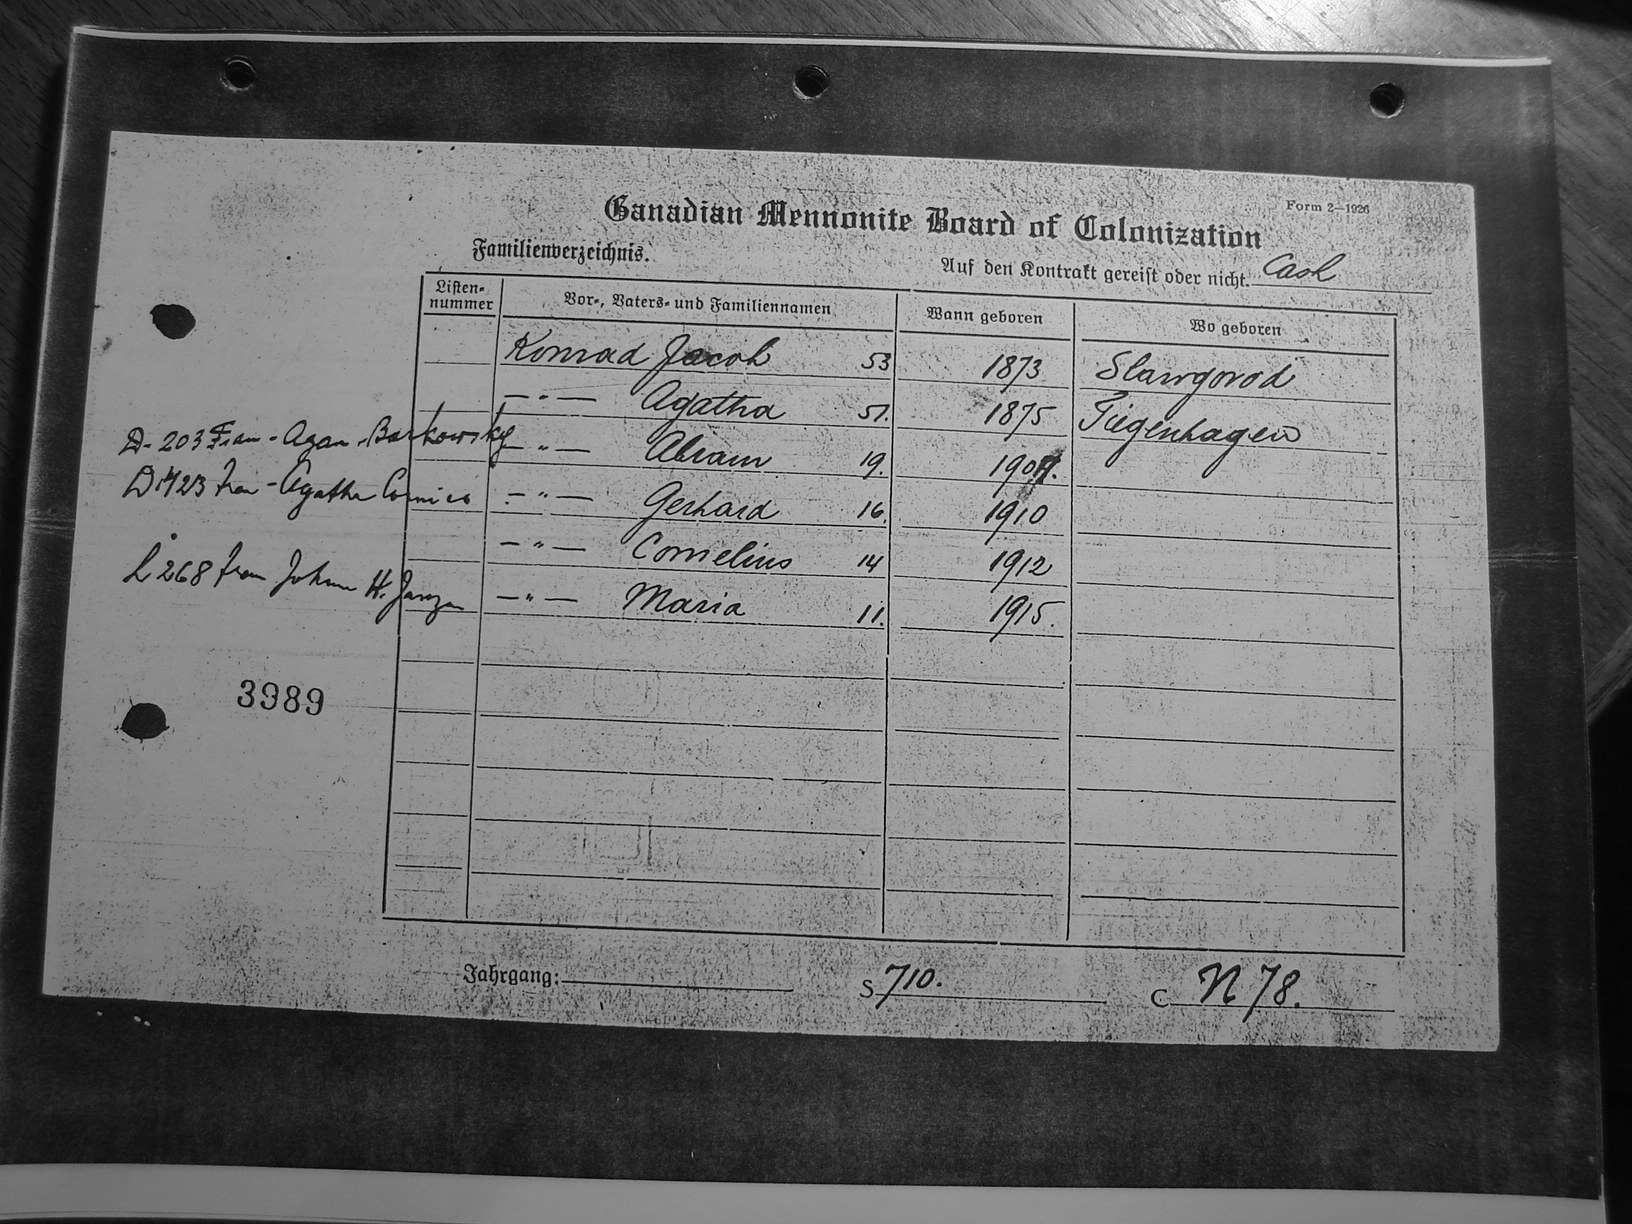 Form 2—1926
Canadian Mennonite Board of Colonization
Familienverzeichnis.
Auf den Kontrakt gereist oder nicht. Cash
Listen-nummer Vor-, Vaters- und Familiennamen Wann geboren Wo geboren
Konrad Jacob 53 1873 Slawgorod
—"— Agatha 51. 1875 Tiegenhagen
D-203 Frau - Agan - Barkowsky
—"— Abram 19. 1907.
D1423 Frau - Agatha Cornies
—"— Gerhard 16. 1910
—"— Cornelius 14 1912
L 268 Frau Johann H. Janzen
—"— Maria 11. 1915.
3989
Jahrgang: S 710. C N 78.